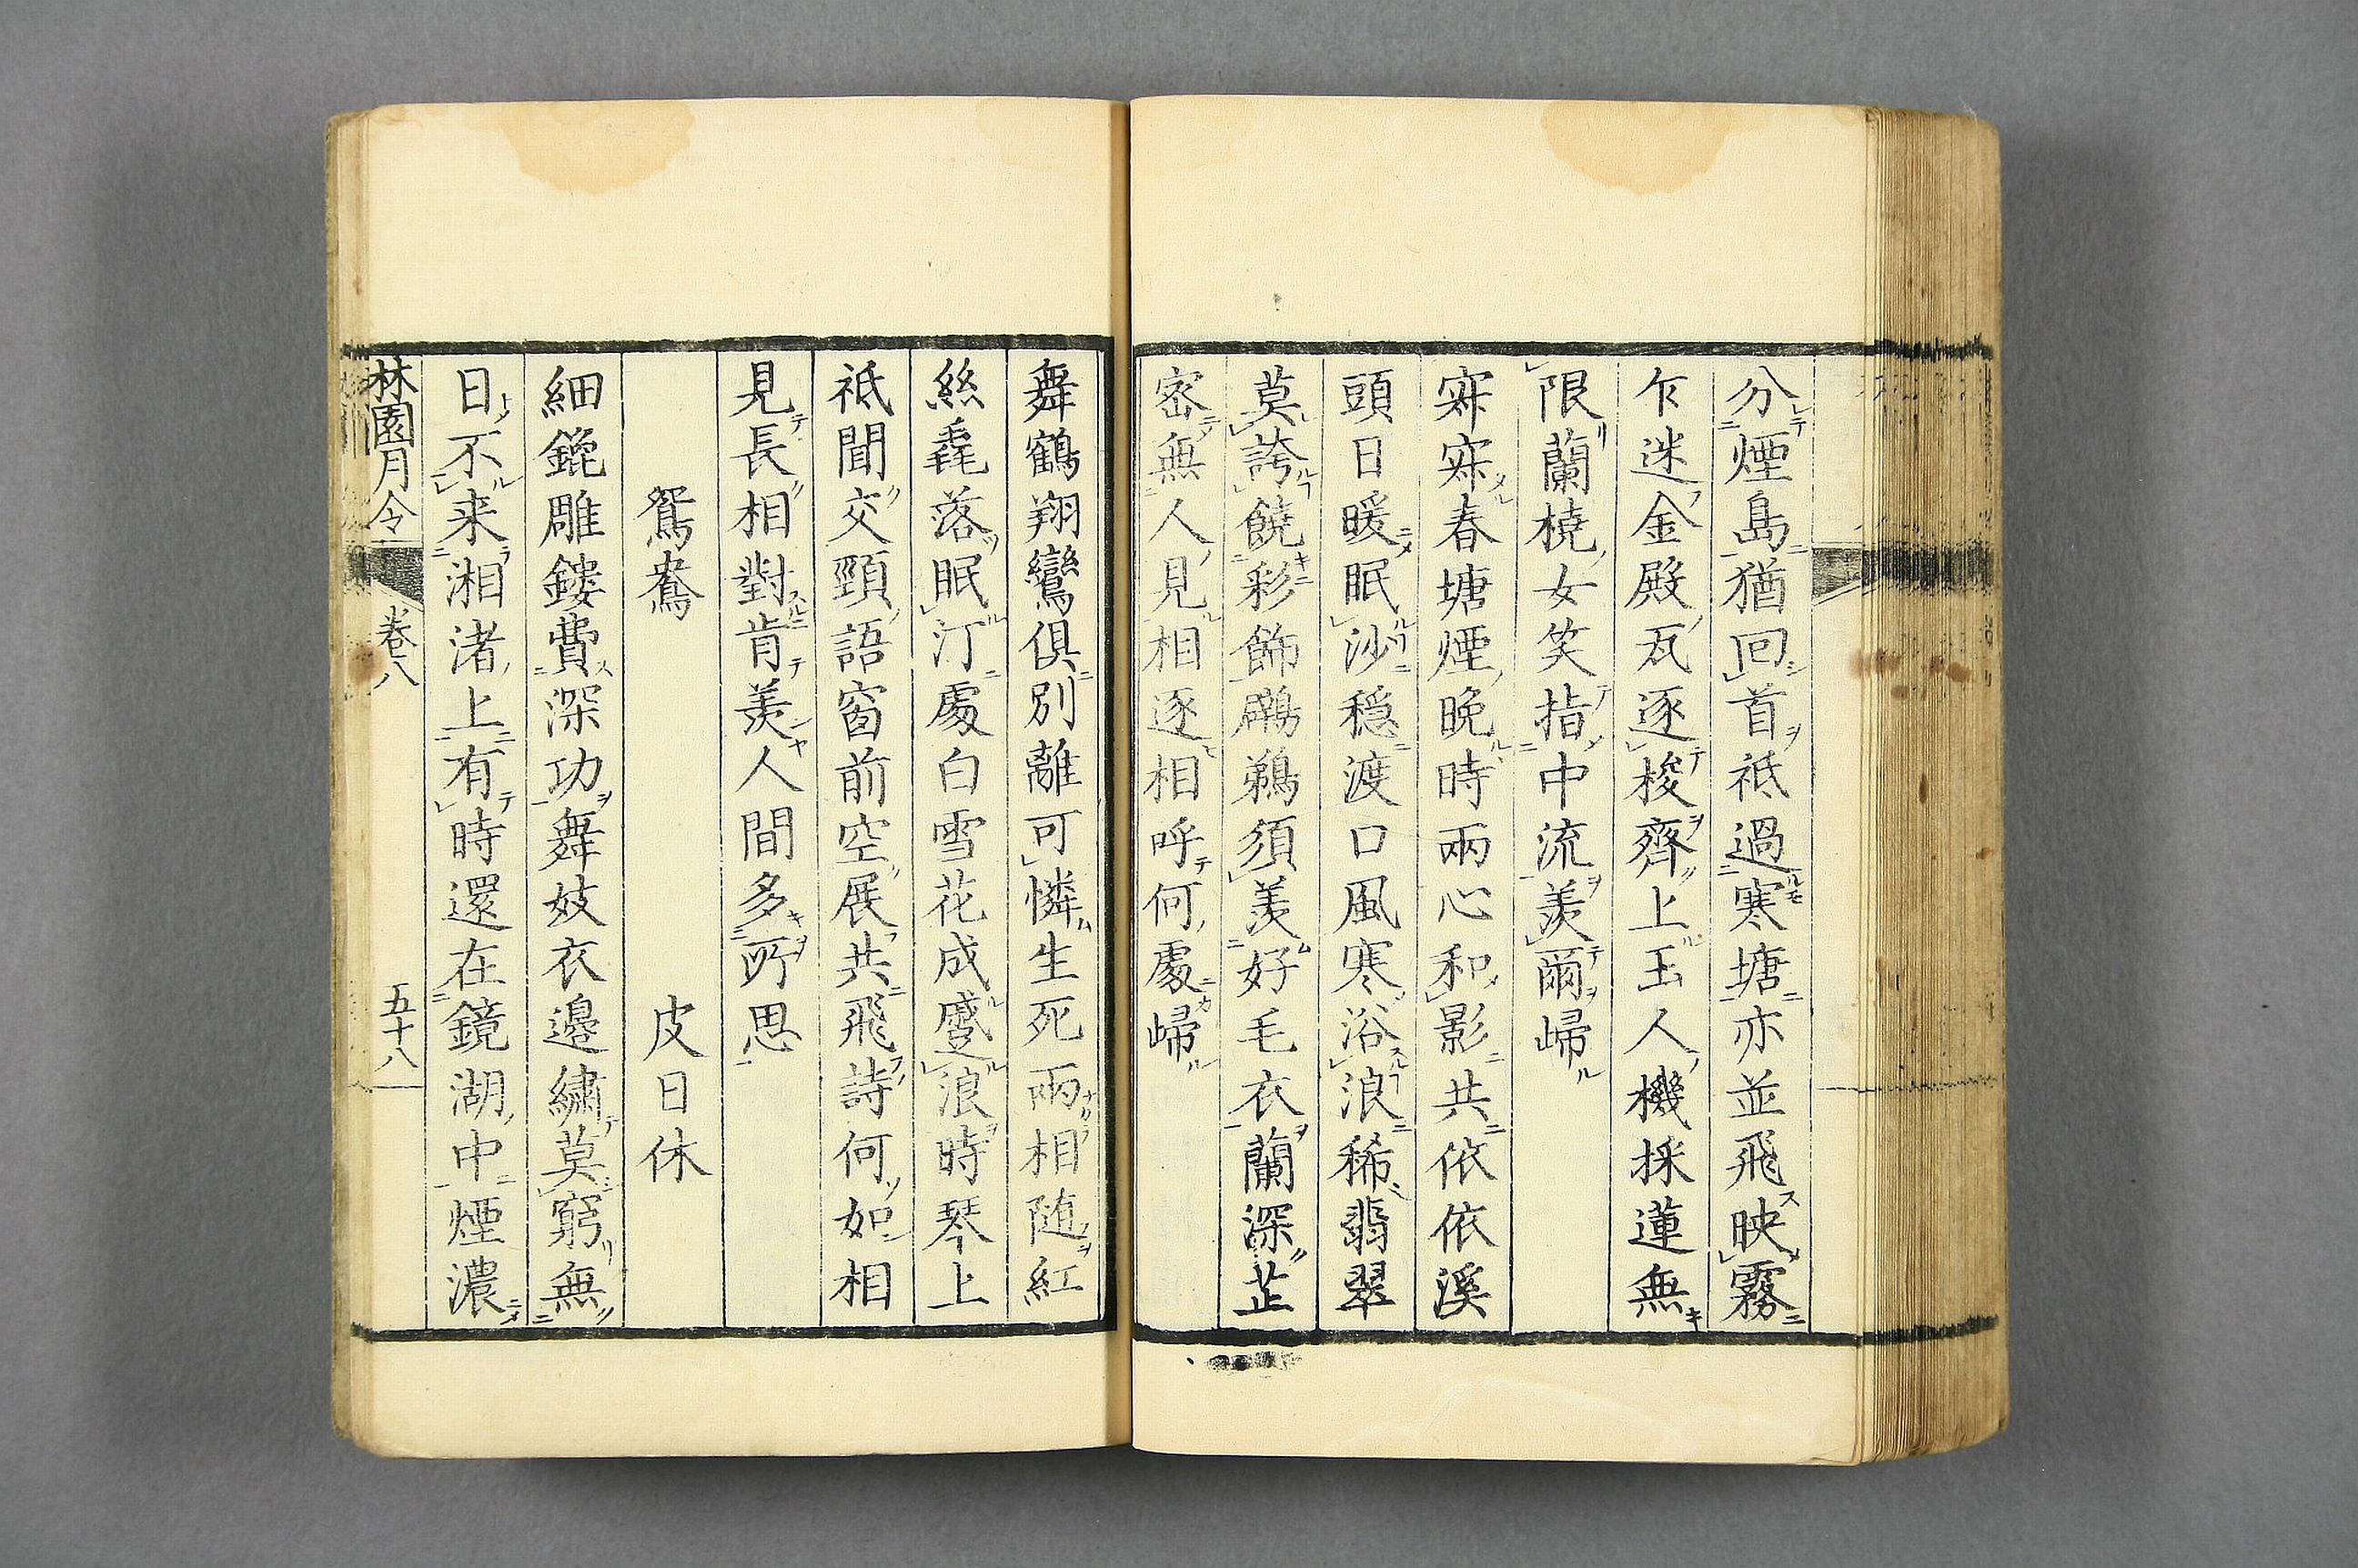 分煙島猶回首祗過寒塘亦並飛映霧
乍迷金殿瓦逐梭齊上玉人機採蓮無
限蘭橈女笑指中流羨爾歸
寂寂春塘煙晚時兩心和影共依依溪
頭日暖眠沙穏渡口風寒浴浪稀翡翠
莫誇饒彩飾鸊鵜須羨好毛衣蘭深芷
密無人見相逐相呼何處歸
舞鶴翔鸞俱別離可憐生死兩相随紅
絲毳落眠汀處白雪花成蹙浪時琴上
祗聞交頸語窗前空展共飛詩何如相
見長相對肯羨人間多所思
鴛鴦
皮日休
細鎞雕鏤費深功舞妓衣邊繡莫窮無
日不来湘渚上有時還在鏡湖中煙濃
林園月令
卷八
五十八